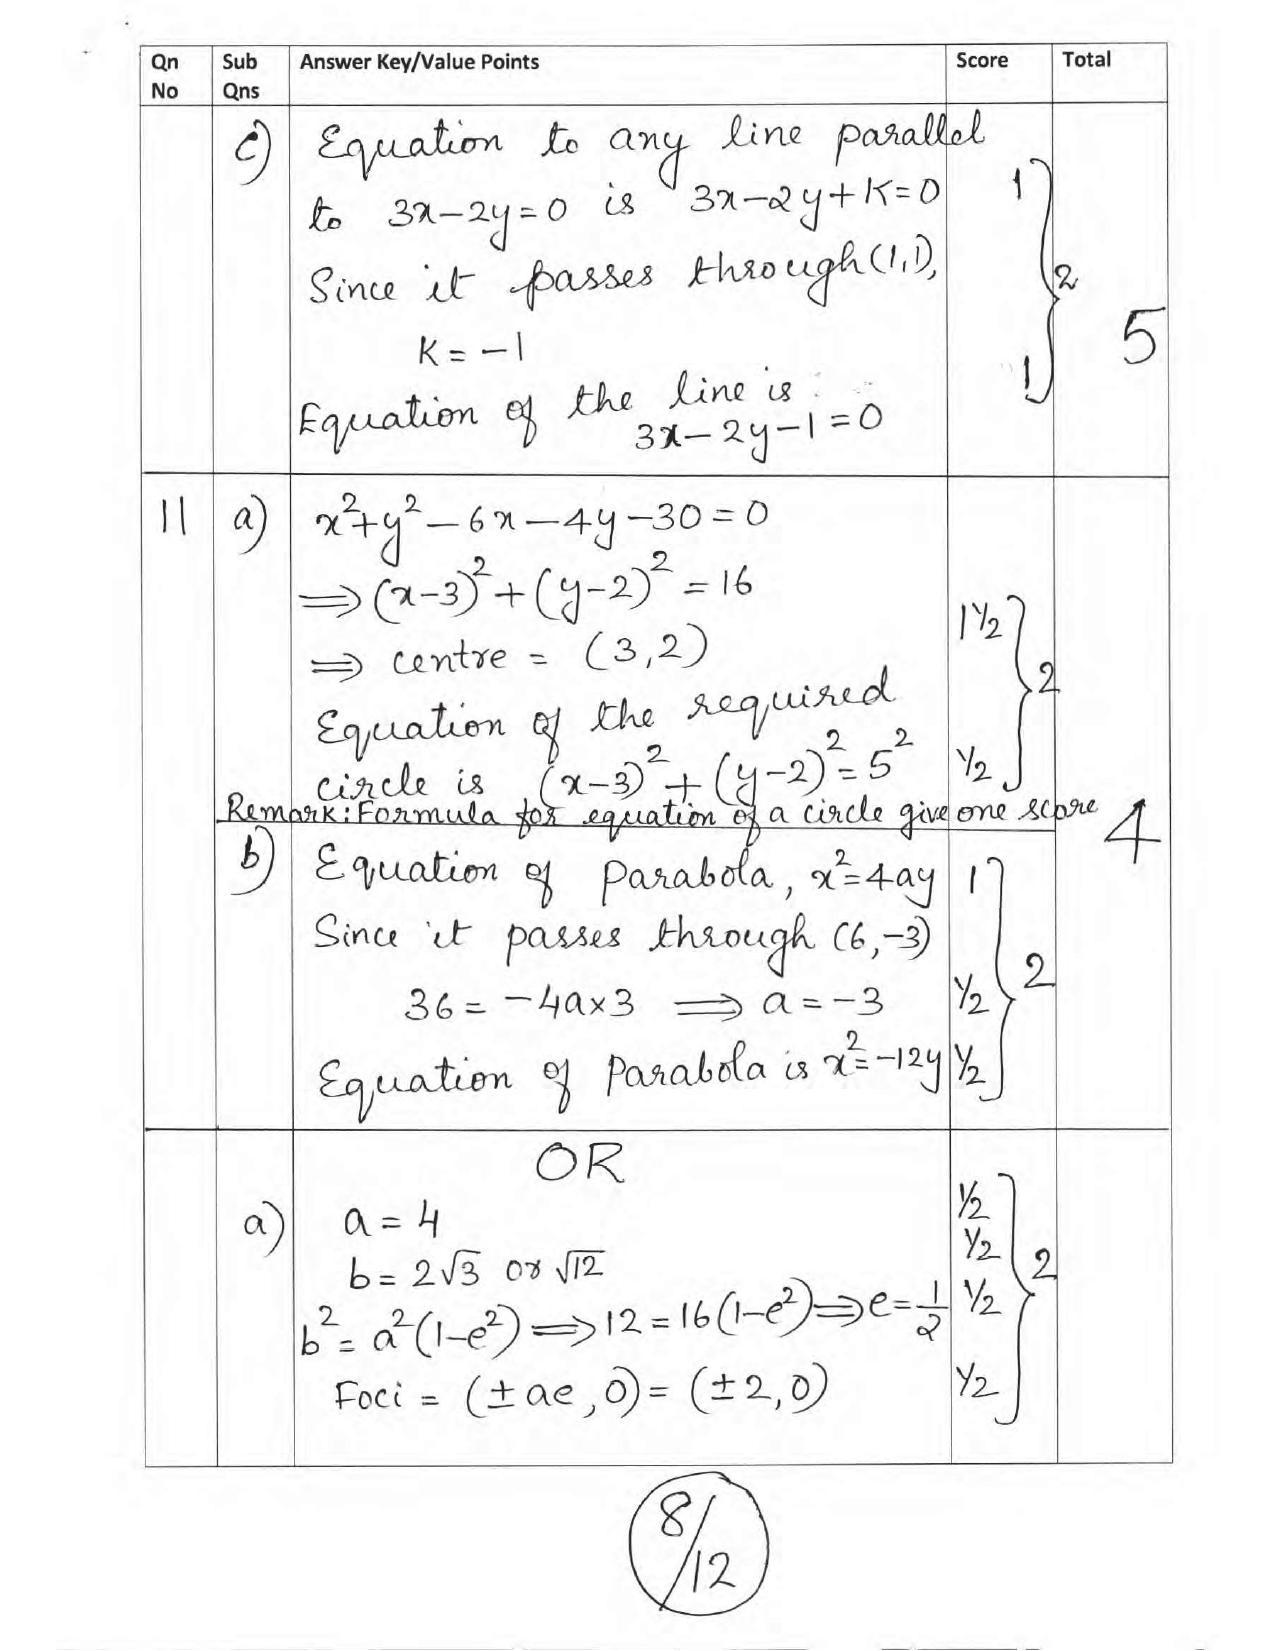 Qn No Sub Qns Answer Key/Value Points Score Total
c) Equation to any line parallel
to 3x-2y=0 is 3x-2y+K=0 1
Since it passes through (1,1), 2
K = -1 5
Equation of the line is 1
3x-2y-1=0
11 a) x²+y²-6x-4y-30=0
⟹ (x-3)²+(y-2)²=16
⟹ centre = (3,2) 1½
Equation of the required 2
circle is (x-3)²+(y-2)²=5² ½
Remark: Formula for equation of a circle give one score 4
b) Equation of Parabola, x²=4ay 1
Since it passes through (6,-3)
36 = -4a×3 ⟹ a = -3 ½ 2
Equation of Parabola is x²=-12y ½
OR
a) a = 4 ½
b = 2√3 or √12 ½ 2
b² = a²(1-e²) ⟹ 12 = 16(1-e²) ⟹ e = 1/2 ½
Foci = (±ae, 0) = (±2, 0) ½
8/12